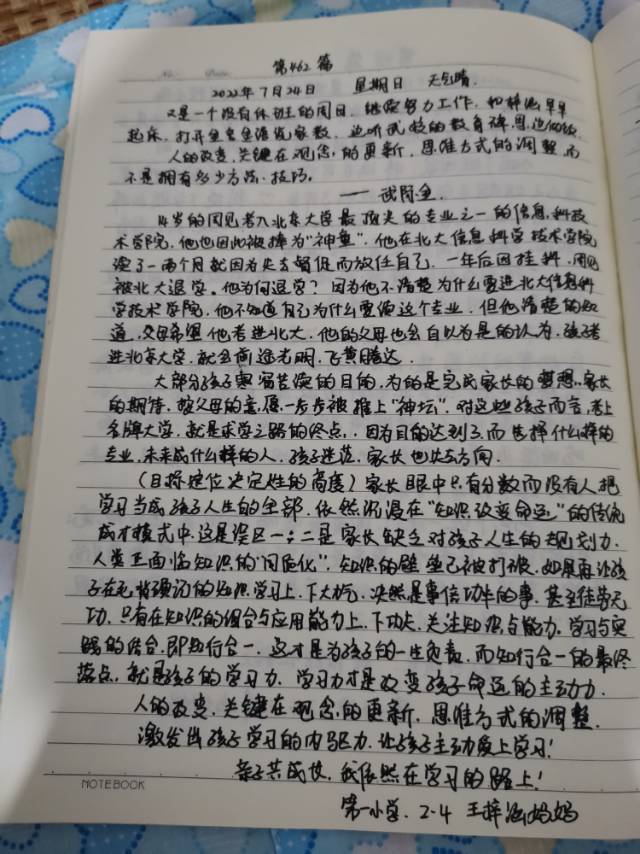 第462篇
No. Date.
2022年7月24日 星期日 天气晴.
又是一个没有休班的周日. 继续努力工作. 和梓涵早早
起床. 打开全名全谱说家教. 边听武校的教育禅思,边
人的改变. 关键在观念,的更新. 思维方式的调整.而
不是拥有多少方法.技巧。
——武际金.
14岁的同见考入北京大学最顶尖的专业之一的信息,科技
术学院. 他也因此被捧为“神童”. 他在北大信息科学技术学院
读了一两个月就因为失去督促而放任自己. 一年后因挂科.
被北大退学。他为何退学？因为他不清楚为什么要进北大信息科
学技术学院. 他不知道自己为什么要读这个专业. 但他清楚的知
道.父母希望他考进北大. 他的父母也会自以为是的认为.孩子考
进北京大学.就会前途光明.飞黄腾达.
大部分孩子寒窗苦读的目的.为的是完成家长的梦想..家长
的期待. 按父母的意愿.一步步被推上“神坛”. 对这些孩子而言,考上
名牌大学. 就是求学之路的终点,. 因为目的达到了.而选择什么样的
专业.未来成什么样的人. 孩子迷茫. 家长也失去方向.
(目标定位决定性的高度)家长眼中只有分数而没有人.把
学习当成孩子人生的全部.依然沉浸在“知识改变命运”的传统
成才模式中.这是误区一;二是家长缺乏对孩子人生的规划力.
人类正面临知识的“同质化”. 知识的壁垒已被打破.如果再让孩
子在死背硬记的知识学习上.下大力气.决然是事倍功半的事.甚至徒劳无
功.只有在知识的组合与应用能力上.下功夫.关注知识与能力.学习与实
践的结合.即知行合一.这才是为孩子的一生负责.而知行合一的最终
落点.就是孩子的学习力. 学习力才是改变孩子命运的主动力.
人的改变.关键在观念,的更新.思维方式的调整.
激发出孩子学习的内驱力.让孩子主动爱上学习!
亲子共成长.我依然在学习的路上!
NOTEBOOK
第一小学.2-4 王梓涵妈妈